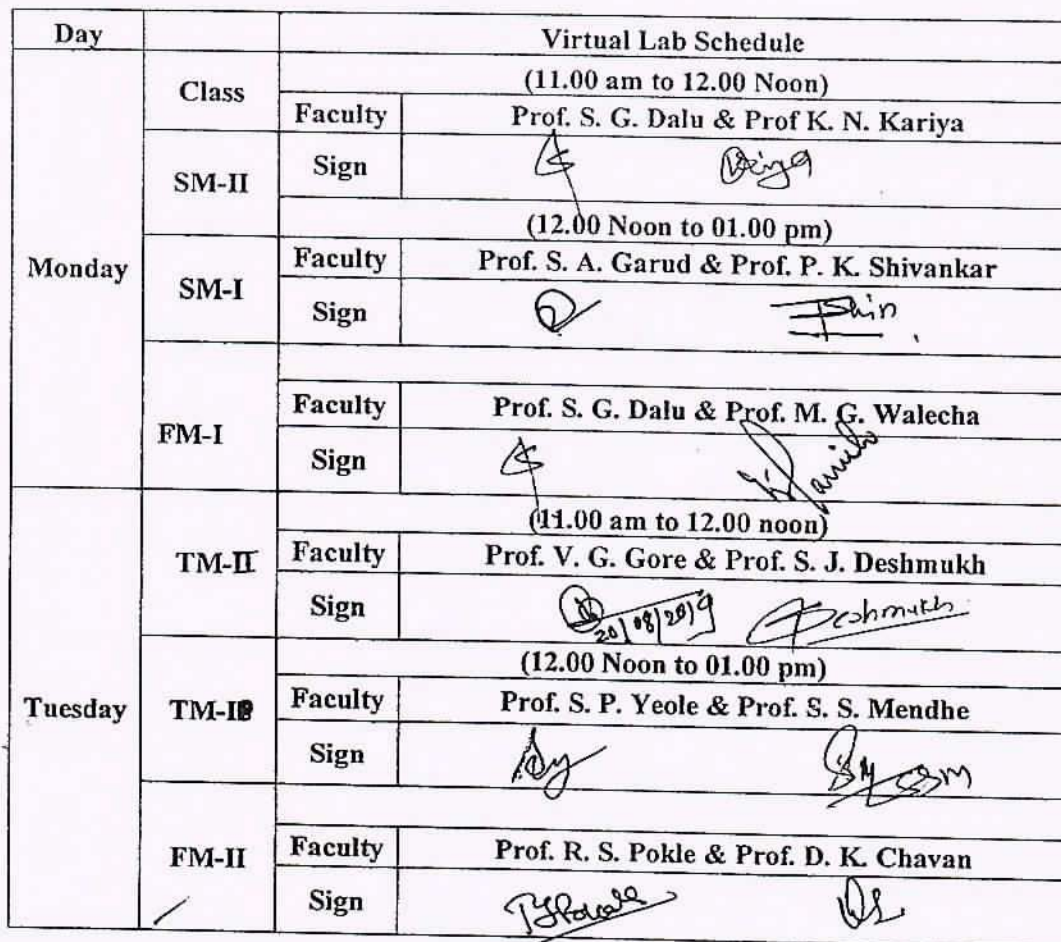 Day Virtual Lab Schedule
Class (11.00 am to 12.00 Noon)
Faculty Prof. S. G. Dalu & Prof K. N. Kariya
SM-II Sign
(12.00 Noon to 01.00 pm)
Monday SM-I Faculty Prof. S. A. Garud & Prof. P. K. Shivankar
Sign
FM-I Faculty Prof. S. G. Dalu & Prof. M. G. Walecha
Sign
(11.00 am to 12.00 noon)
TM-II Faculty Prof. V. G. Gore & Prof. S. J. Deshmukh
Sign 20/08/2019 Deshmukh
(12.00 Noon to 01.00 pm)
Tuesday Faculty Prof. S. P. Yeole & Prof. S. S. Mendhe
Sign
FM-II Faculty Prof. R. S. Pokle & Prof. D. K. Chavan
Sign